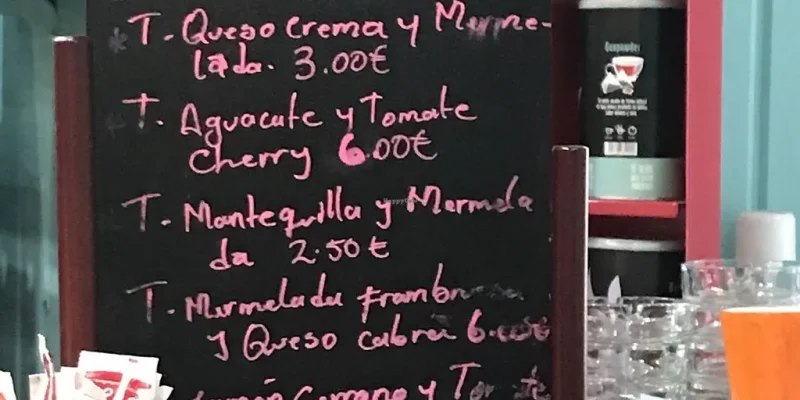 * T. Queso Crema y Merme-
lada. 3.00€
T. Aguacate y Tomate
cherry 6.00€
T. Mantequilla y Mermela
da 2.50€
T. Mermelada Frambu
y Queso cabra 6.00€
Serrano y Tomate